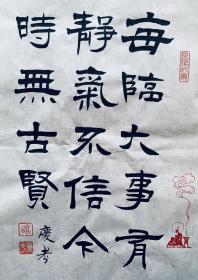 每臨大事有
靜氣不信今
時無古賢
慶